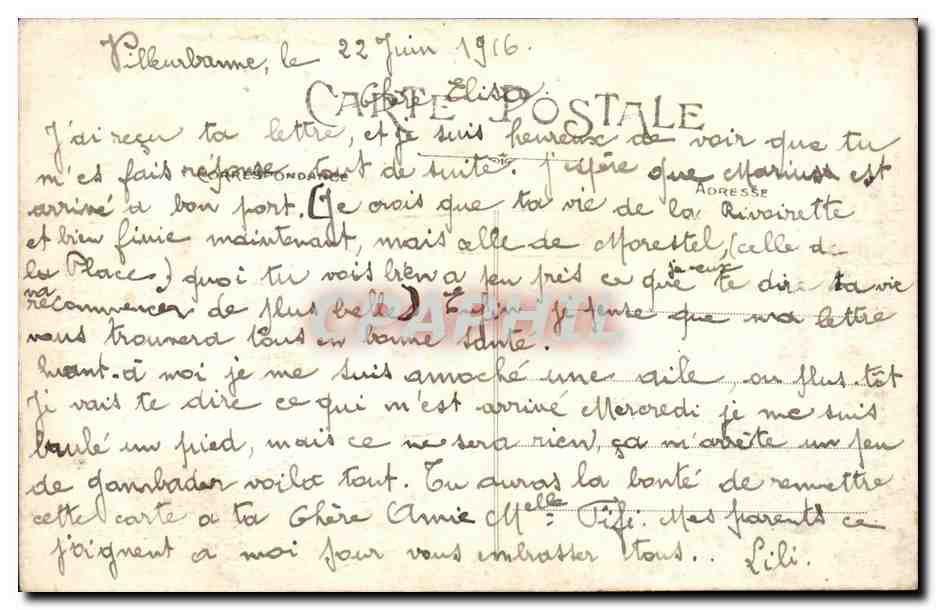 Villeurbanne, le 22 Juin 1916.
CARTE POSTALE
Chère Elisa
J'ai reçu ta lettre, et je suis heureux de voir que tu
m'es fais reponse tout de suite. J'espère que Marius est
CORRESPONDANCE
ADRESSE
arrivé a bon port. (Je crois que ta vie de la Rivoirette
et bien finie maintenant, mais celle de Morestel, (celle de
la Place) quoi tu vois bien a peu près ce que je veux te dire ta vie
va recommencer de plus belle) Enfin je pense que ma lettre
CPAPHIL
vous trouvera tous en bonne santé.
Quant-à moi je me suis amoché une aile, ou plus tôt
Je vais te dire ce qui m'est arrivé Mercredi je me suis
baulé un pied, mais ce ne sera rien, ça m'arrête un peu
de gambader voila tout. Tu auras la bonté de remettre
cette carte a ta Chère Amie Melle Fifi. Mes parents ce
joignent a moi pour vous embrasser tous..
Lili.